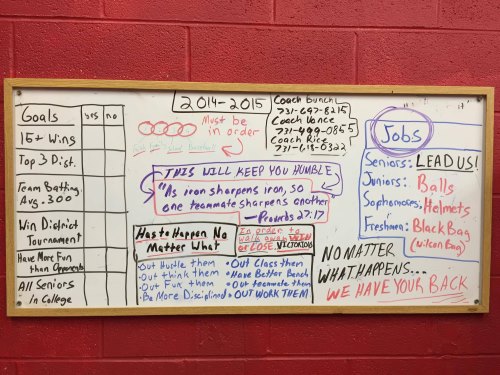 Goals yes no
15+ Wins
Top 3 Dist.
Team Batting
Avg .300
Win District
Tournament
Have More Fun
than Opponents
All Seniors
In College
2014-2015
Must be
in order
Coach Bunch
731-697-8215
Coach Vance
731-499-0855
Coach Rice
731-618-0322
THIS WILL KEEP YOU HUMBLE
"As iron sharpens iron, so
one teammate sharpens another"
- Proverbs 27:17
Has to Happen No
Matter What
In order to
walk away WIN
or LOSE, VICTORIOUS
• Out Hustle them
• Out think them
• Out Fun them
• Be More Disciplined
• Out Class them
• Have Better Bench
• Out teammate them
• OUT WORK THEM
Jobs
Seniors: LEAD US!
Juniors: Balls
Sophomores: Helmets
Freshmen: Black Bag
(wilson Bag)
NO MATTER
WHAT HAPPENS...
WE HAVE YOUR BACK